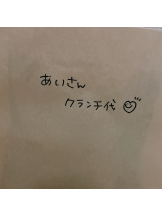 あいさん
クランチ代♡